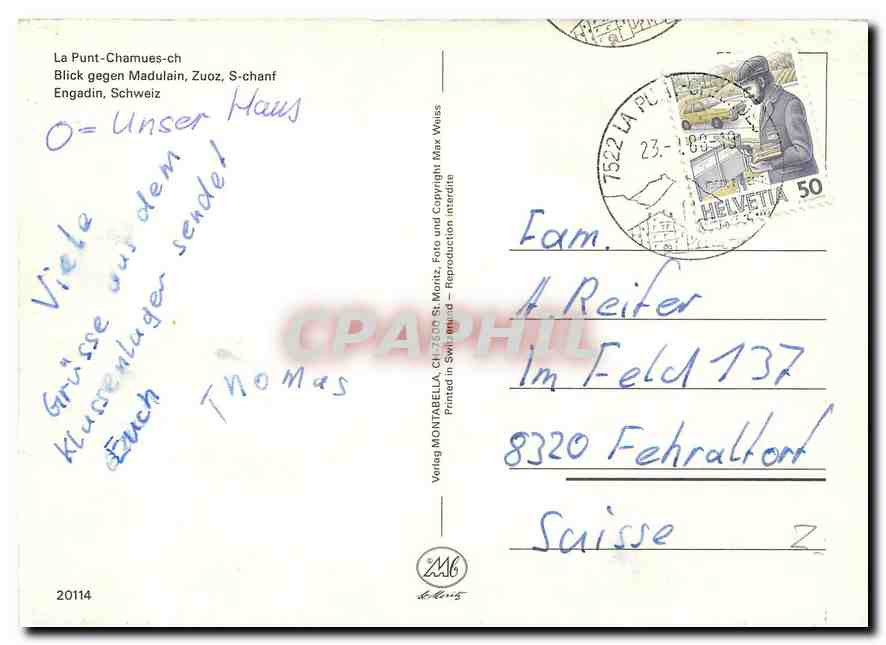 La Punt-Chamues-ch
Blick gegen Madulain, Zuoz, S-chanf
Engadin, Schweiz
O = Unser Haus
Viele
Grüsse aus dem
Klassenlager sendet
Euch
Thomas
20114
Verlag MONTABELLA, CH-7500 St. Moritz, Foto und Copyright Max Weiss
Printed in Switzerland – Reproduction interdite
CPAPHIL
MG
St. Moritz
7522 LA PUNT-CH
23.
HELVETIA 50
Fam.
A. Reifer
Im Feld 137
8320 Fehraltorf
Suisse
Z